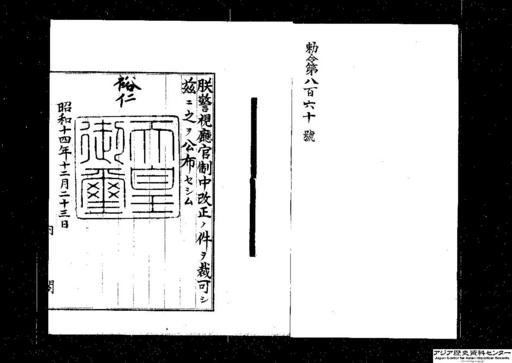 勅令第八百六十號
朕警視廳官制中改正ノ件ヲ裁可シ
茲ニ之ヲ公布セシム
裕仁
天皇御璽
昭和十四年十二月二十三日
内閣
アジア歴史資料センター
Japan Center for Asian Historical Records